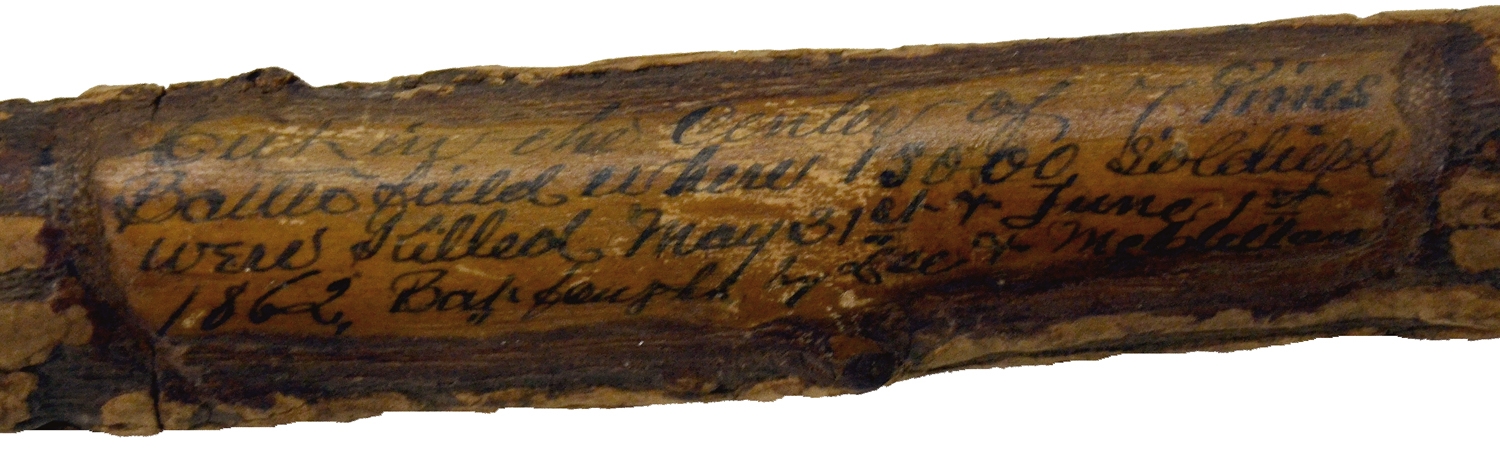 Cut in the Center of 7 Pines
Battle field where 15000 Soldiers
were Killed May 31st & June 1st
1862, fought by Lee & McClellan